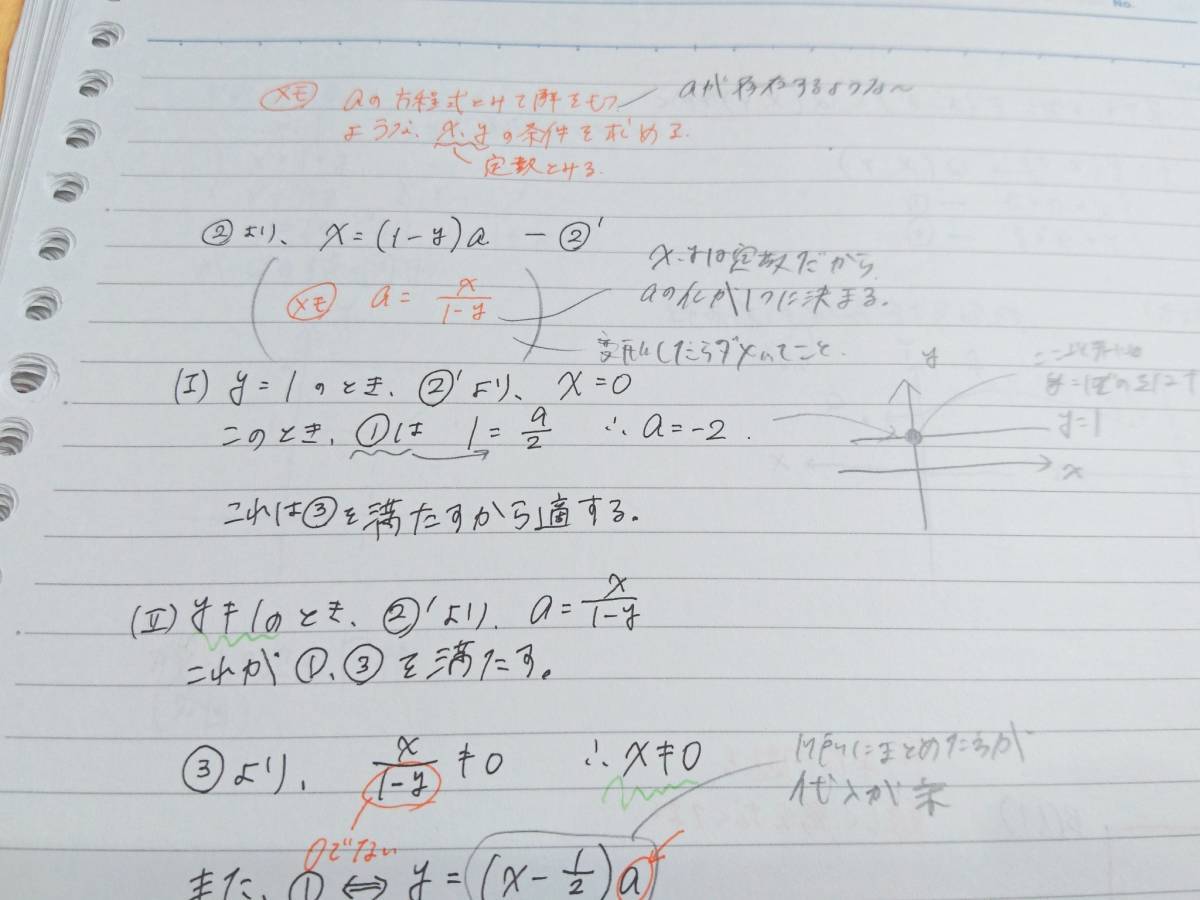 No.
メモ aの方程式とみて解をもつ
aが存在するような〜
ような、x、yの条件を求める。
定数とみる。
②より、x=(1-y)a -②'
x、yは定数だから
aの化が1つに決まる。
メモ a= x/(1-y)
変形したらダメってこと。
y
(I) y=1のとき、②'より、x=0
y=1
このとき、①は 1= a/2 ∴ a=-2.
x
これは③を満たすから適する。
(II) y≠1のとき、②'より、a= x/(1-y)
これが①、③を満たす。
③より、 x/(1-y) ≠0 ∴ x≠0
まとめたろが
代入が楽
0でない
また、① ⇔ y=(x- 1/2)a